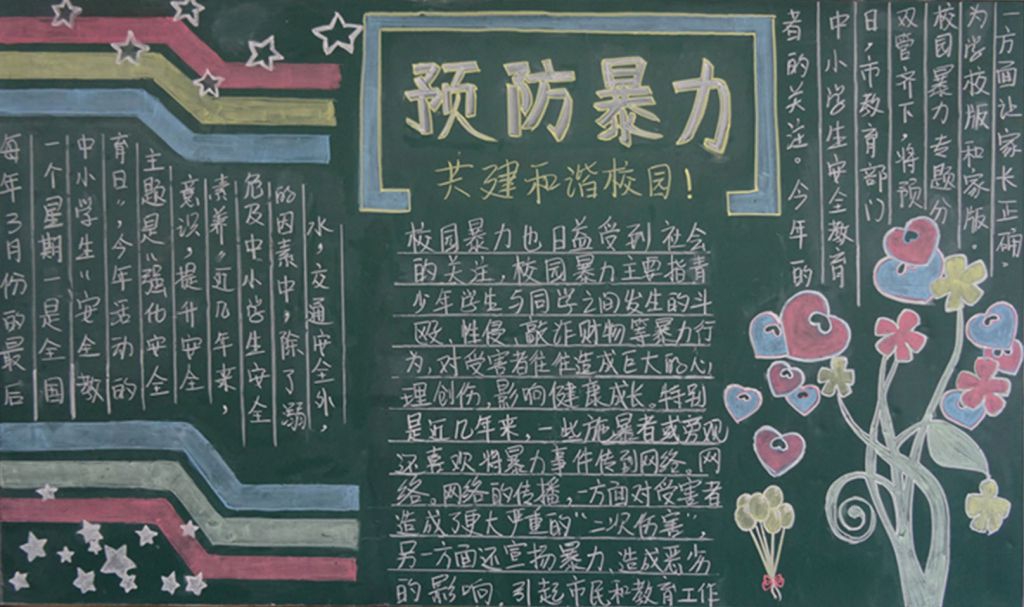 预防暴力
共建和谐校园!
每年3月份的最后
一个星期一是全国
中小学生“安全教
育日”,今年活动的
主题是“强化安全
意识,提升安全
素养”近几年来,
危及中小学生安全
的因素中,除了溺
水,交通安全外,
校园暴力也日益受到社会
的关注,校园暴力主要指青
少年学生与同学之间发生的斗
殴、性侵、敲诈财物等暴力行
为,对受害者往往造成巨大的心
理创伤,影响健康成长。特别
是近几年来,一些施暴者或旁观
还喜欢将暴力事件传到网络。网
络。网络的传播,一方面对受害者
造成了更大严重的“二次伤害”,
另一方面还宣扬暴力、造成恶劣
的影响,引起市民和教育工作
者的关注。今年的
中小学生安全教育
日,市教育部门
双管齐下,将预
校园暴力专题分
为学校版和家版。
一方面让家长正确。